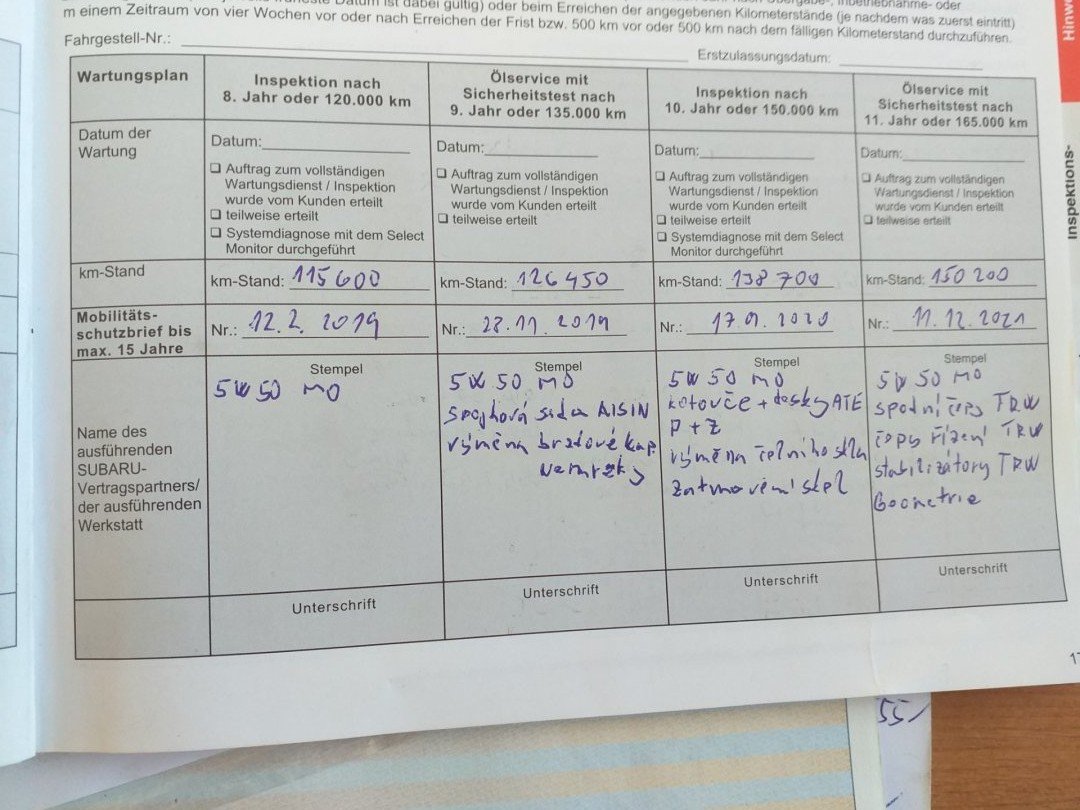 m einem Zeitraum von vier Wochen vor oder nach Erreichen der Frist bzw. 500 km vor oder 500 km nach dem fälligen Kilometerstand durchzuführen.
Fahrgestell-Nr.:
Erstzulassungsdatum:
Wartungsplan
Inspektion nach
8. Jahr oder 120.000 km
Ölservice mit
Sicherheitstest nach
9. Jahr oder 135.000 km
Inspektion nach
10. Jahr oder 150.000 km
Ölservice mit
Sicherheitstest nach
11. Jahr oder 165.000 km
Datum der
Wartung
Datum:
❑ Auftrag zum vollständigen
Wartungsdienst / Inspektion
wurde vom Kunden erteilt
❑ teilweise erteilt
❑ Systemdiagnose mit dem Select
Monitor durchgeführt
Datum:
❑ Auftrag zum vollständigen
Wartungsdienst / Inspektion
wurde vom Kunden erteilt
❑ teilweise erteilt
Datum:
❑ Auftrag zum vollständigen
Wartungsdienst / Inspektion
wurde vom Kunden erteilt
❑ teilweise erteilt
❑ Systemdiagnose mit dem Select
Monitor durchgeführt
Datum:
❑ Auftrag zum vollständigen
Wartungsdienst / Inspektion
wurde vom Kunden erteilt
❑ teilweise erteilt
km-Stand
km-Stand: 115600
km-Stand: 126450
km-Stand: 138700
km-Stand: 150200
Mobilitäts-
schutzbrief bis
max. 15 Jahre
Nr.: 12.2. 2019
Nr.: 28.11. 2019
Nr.: 17.9. 2020
Nr.: 11.12.2021
Name des
ausführenden
SUBARU-
Vertragspartners/
der ausführenden
Werkstatt
Stempel
5W50 MO
Stempel
5W50 MO
spojková sada AISIN
výměna brzdové kap.
nemrzky
Stempel
5W50 MO
kotouče + desky ATE
P + Z
výměna čelního skla
zatmavení skel
Stempel
5W50 MO
spodní čepy TRW
čepy řízení TRW
stabilizátory TRW
Geometrie
Unterschrift
Unterschrift
Unterschrift
Unterschrift
Inspektions-
55